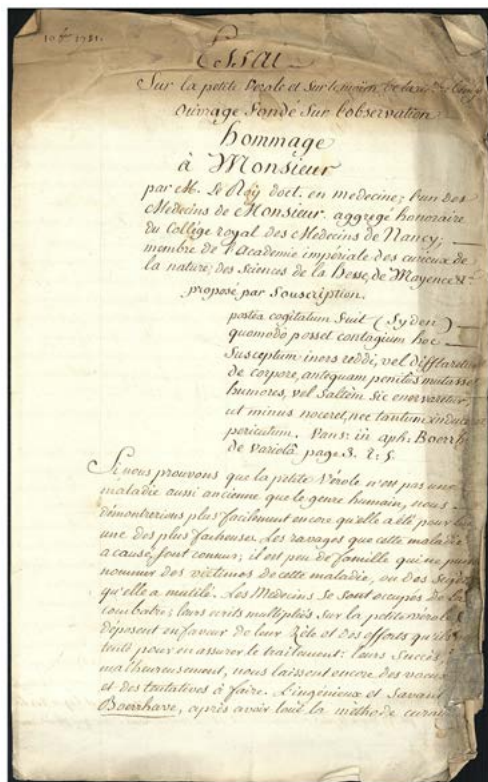 10 1781.
Essai
Sur la petite Verole et sur le moïen de la
Ouvrage fondé Sur l'observation
hommage
à Monsieur
par M. Le Roy doct. en medecine; l'un des
Medecins de Monsieur. aggregé honoraire
du Collége royal des Medecins de Nancy;
membre de l'academie impériale des curieux de
la nature; des Sciences de la hesse, de Mayence &c
proposé par Souscription.
postea cogitatum fuit (Syden)
quomodo posset contagium hoc
Susceptum iners reddi, vel difflari
de corpore, antequam penitùs mutasset
humores, vel Saltèm sic enervaretur
ut minus noceret, nec tantum induceret
periculum. Vans. in aph. Boerrh
de variolâ page 3. t. 5.
Si nous prouvons que la petite Vérole n'est pas une
maladie aussi ancienne que le genre humain, nous
démontrerions plus facilement encore qu'elle a été pour lui
une des plus facheuses. Les ravages que cette maladie
a causé, sont connus; il est peu de famille qui ne puisse
nommer des victimes de cette maladie, ou des Sujets
qu'elle a mutilé. Les Medecins se sont occupés de la
combatre; leurs ecrits multipliés sur la petite vérole
déposent en faveur de leur Zèle et des efforts qu'ils
tenté pour en assurer le traitement: leurs Succès,
malheureusement, nous laissent encore des vœux
et des tentatives à faire. L'ingénieux et Savant
Boerrhave, après avoir loué la méthode